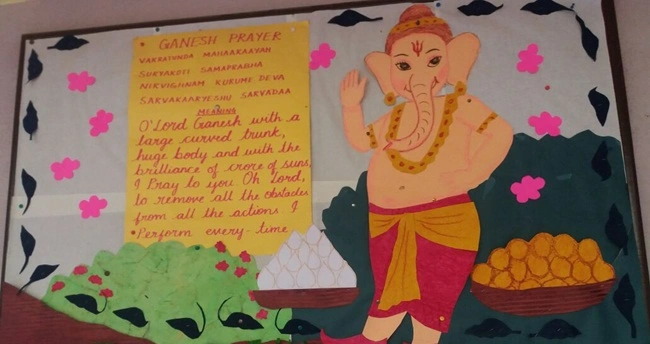 GANESH PRAYER
VAKRATUNDA MAHAAKAAYAH
SURYAKOTI SAMAPRABHA
NIRVIGHNAM KURUME DEVA
SARVAKAARYESHU SARVADAA
MEANING
O'Lord Ganesh with a
large curved trunk,
huge body and with the
brilliance of crore of suns,
I Pray to you Oh Lord,
to remove all the obstacles
from all the actions I
Perform every-time